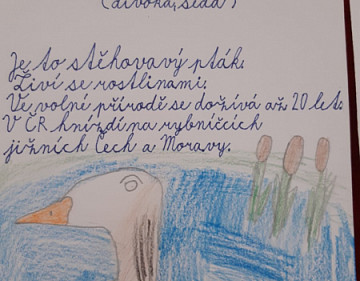 (divoká, šedá)
Je to stěhovavý pták.
Živí se rostlinami.
Ve volné přírodě se dožívá až 20 let.
V ČR hnízdí na rybníčcích
jižních Čech a Moravy.